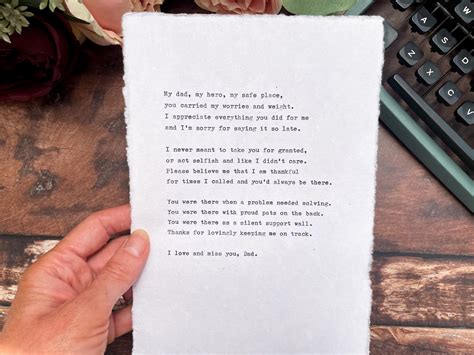 My dad, my hero, my safe place,
you carried my worries and weight.
I appreciate everything you did for me
and I'm sorry for saying it so late.
I never meant to take you for granted,
or act selfish and like I didn't care.
Please believe me that I am thankful
for times I called and you'd always be there.
You were there when a problem needed solving.
You were there with proud pats on the back.
You were there as a silent support wall.
Thanks for lovingly keeping me on track.
I love and miss you, Dad.